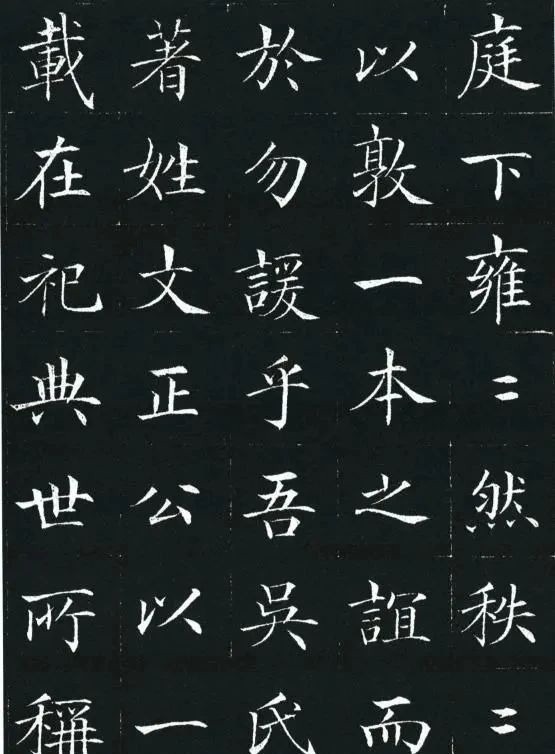 庭下雍⺀然秩⺀
以敦一本之誼而
於勿諼乎吾吳氏
著姓文正公以一
載在祀典世所稱